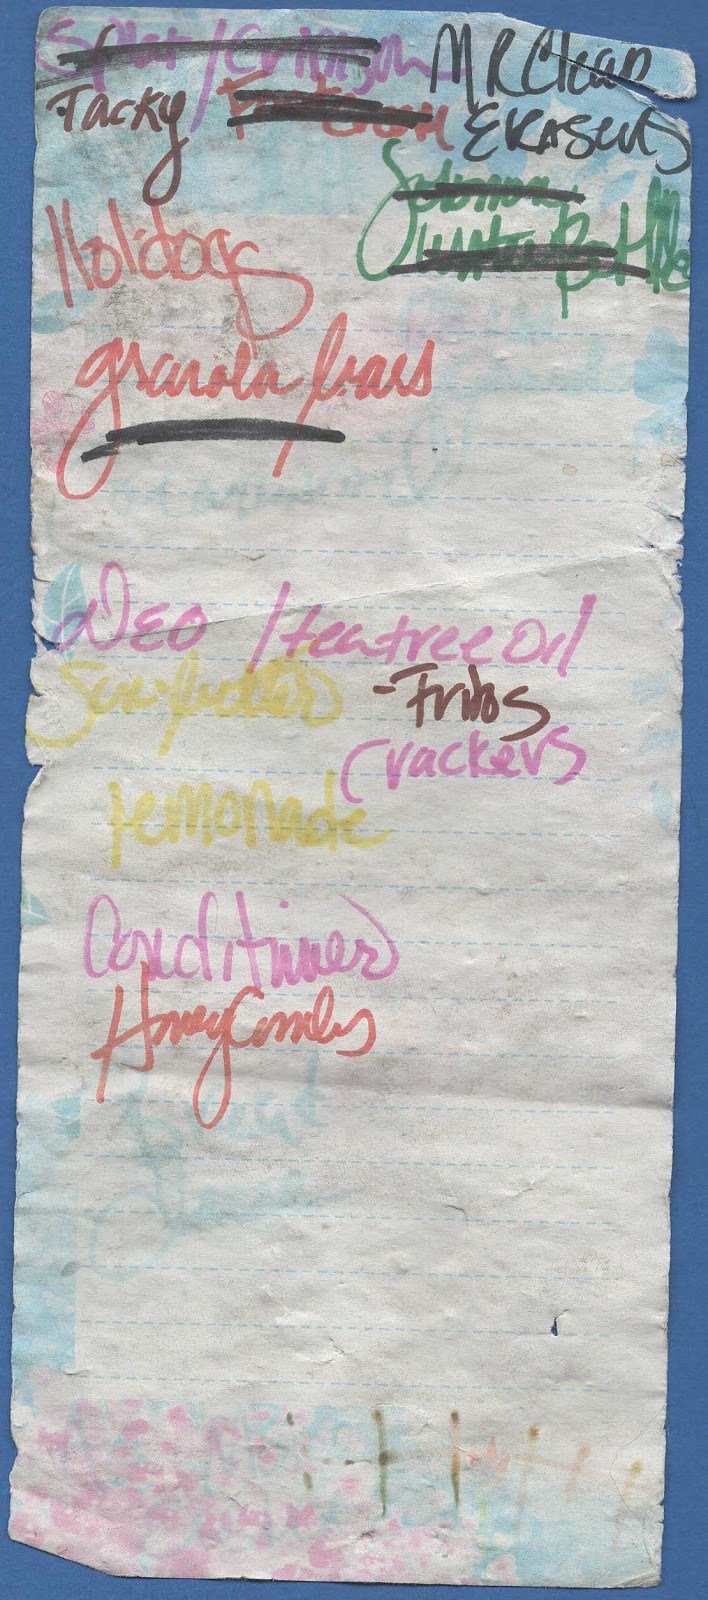 Splat / Crimson MR Clean
Tacky Erasers
Hotdogs Water Bottle
granola bars
Deo / teatree oil
Sun butter - Fritos
crackers
lemonade
Conditinner
HoneyCombs